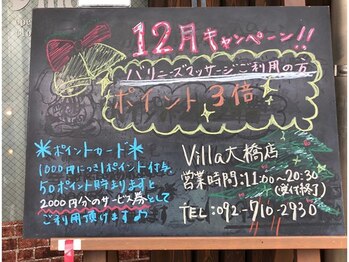 12月キャンペーン!!
バリニーズマッサージご利用の方
ポイント3倍
*ポイントカード*
1000円につき1ポイント付与
50ポイント貯まりますと
2000円分のサービス券として
ご利用頂けます♪
Villa大橋店
営業時間:11:00~20:30
(受付終了)
TEL:092-710-2930